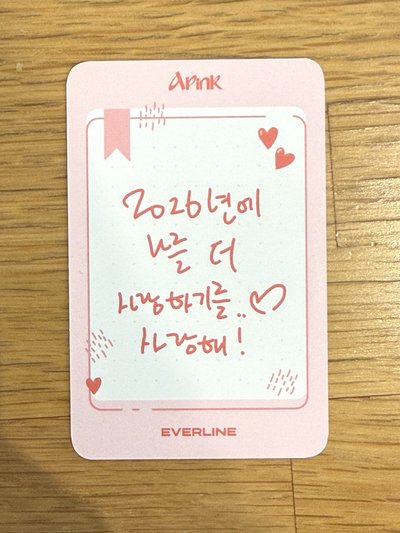 Apink
2026년에
날 더
사랑하기를.. ♡
사랑해!
EVERLINE